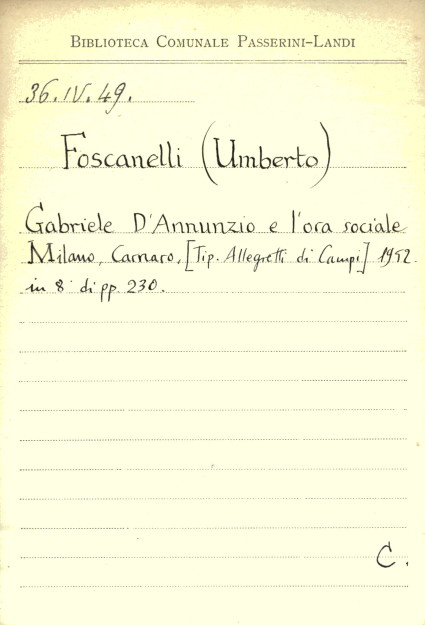 BIBLIOTECA COMUNALE PASSERINI-LANDI
36.IV.49.
Foscanelli (Umberto)
Gabriele D'Annunzio e l'ora sociale
Milano, Carnaro, [Tip. Allegretti di Campi] 1952.
in 8° di pp. 230.
C.